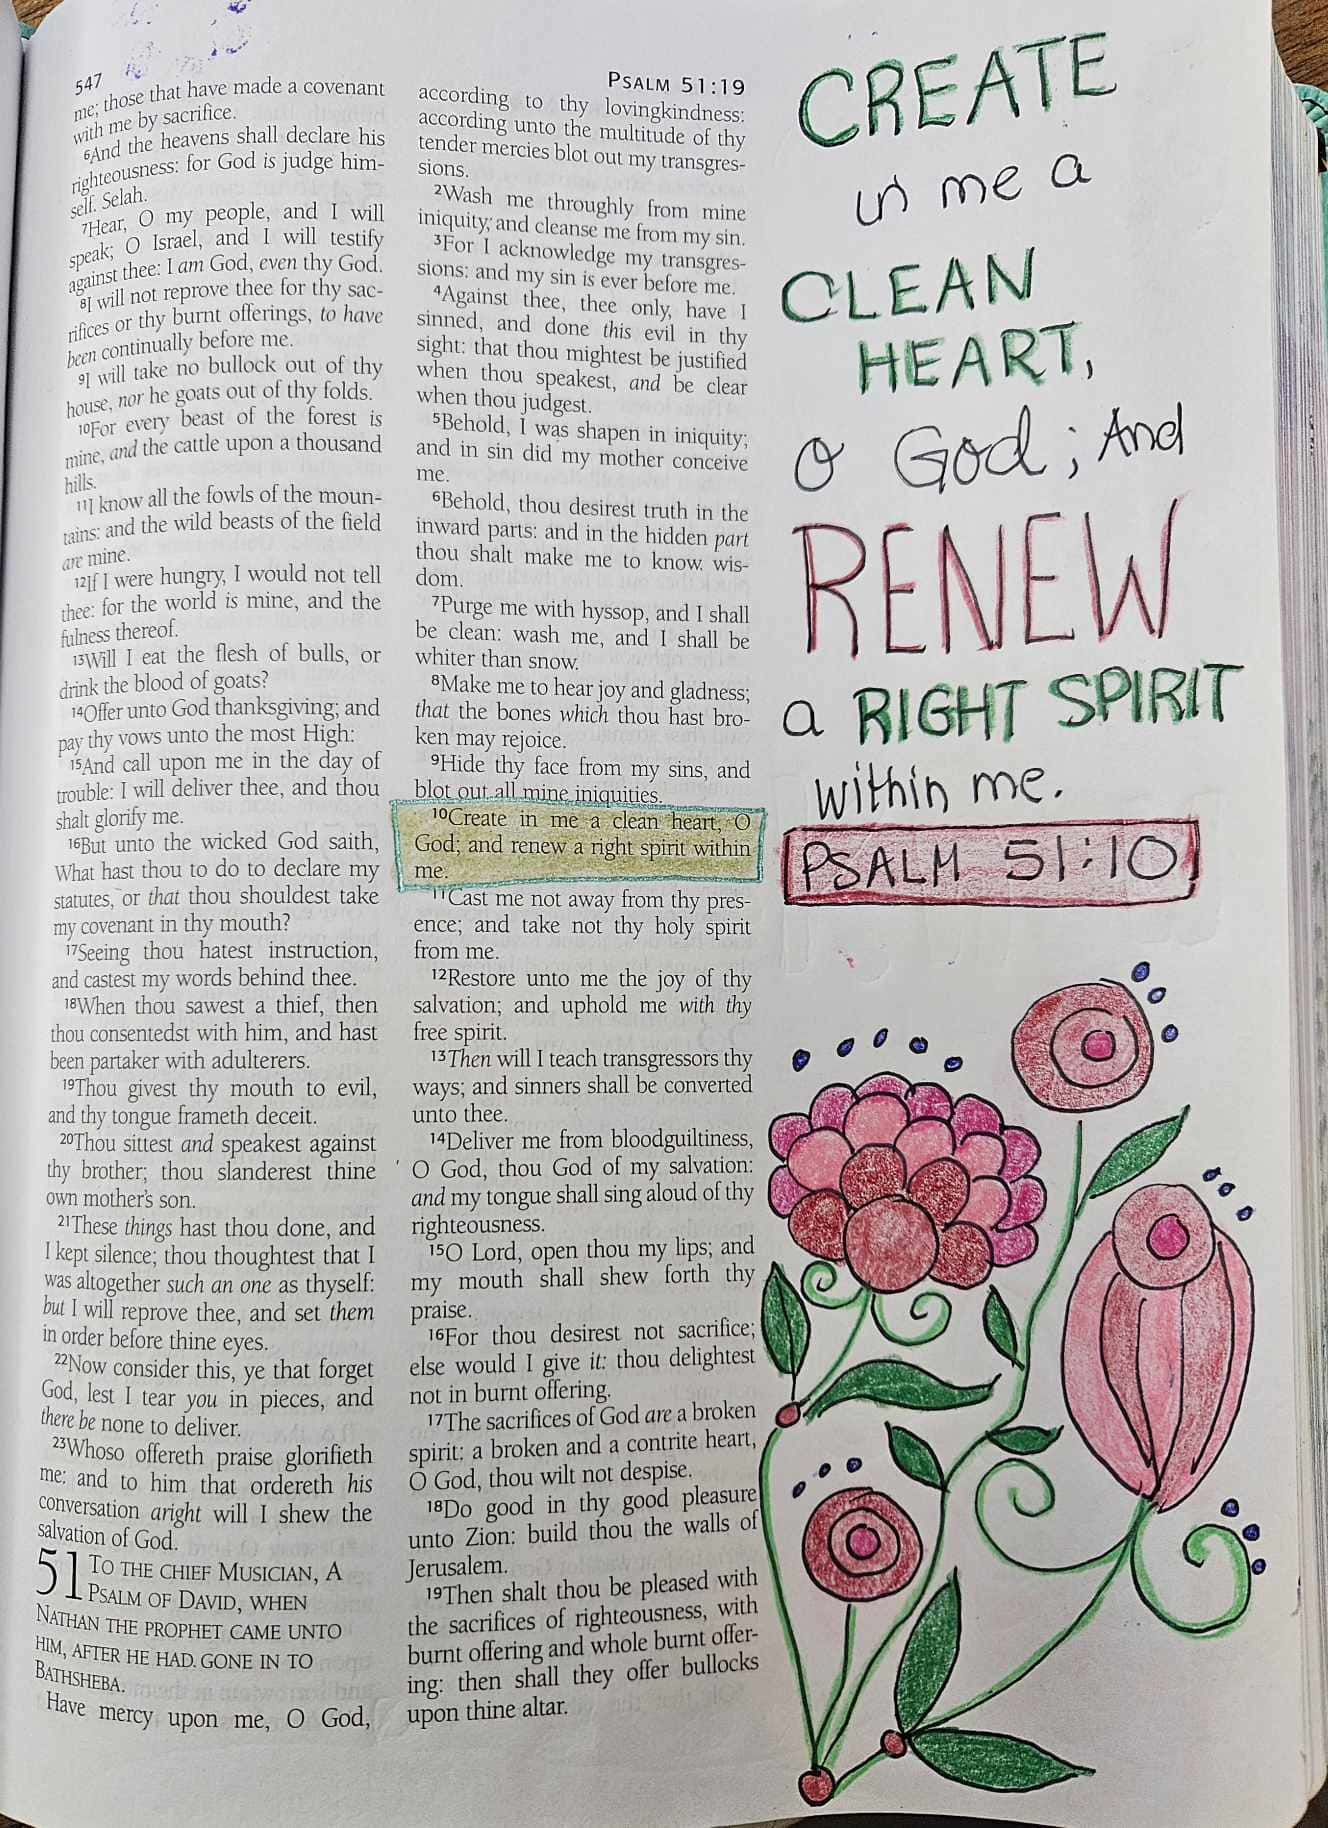 547
me; those that have made a covenant
with me by sacrifice.
6And the heavens shall declare his
righteousness: for God is judge him-
self. Selah.
7Hear, O my people, and I will
speak; O Israel, and I will testify
against thee: I am God, even thy God.
8I will not reprove thee for thy sac-
rifices or thy burnt offerings, to have
been continually before me.
9I will take no bullock out of thy
house, nor he goats out of thy folds.
10For every beast of the forest is
mine, and the cattle upon a thousand
hills.
11I know all the fowls of the moun-
tains: and the wild beasts of the field
are mine.
12If I were hungry, I would not tell
thee: for the world is mine, and the
fulness thereof.
13Will I eat the flesh of bulls, or
drink the blood of goats?
14Offer unto God thanksgiving; and
pay thy vows unto the most High:
15And call upon me in the day of
trouble: I will deliver thee, and thou
shalt glorify me.
16But unto the wicked God saith,
What hast thou to do to declare my
statutes, or that thou shouldest take
my covenant in thy mouth?
17Seeing thou hatest instruction,
and castest my words behind thee.
18When thou sawest a thief, then
thou consentedst with him, and hast
been partaker with adulterers.
19Thou givest thy mouth to evil,
and thy tongue frameth deceit.
20Thou sittest and speakest against
thy brother; thou slanderest thine
own mother's son.
21These things hast thou done, and
I kept silence; thou thoughtest that I
was altogether such an one as thyself:
but I will reprove thee, and set them
in order before thine eyes.
22Now consider this, ye that forget
God, lest I tear you in pieces, and
there be none to deliver.
23Whoso offereth praise glorifieth
me: and to him that ordereth his
conversation aright will I shew the
salvation of God.
51 TO THE CHIEF MUSICIAN, A
PSALM OF DAVID, WHEN
NATHAN THE PROPHET CAME UNTO
HIM, AFTER HE HAD GONE IN TO
BATHSHEBA.
Have mercy upon me, O God,
PSALM 51:19
according to thy lovingkindness:
according unto the multitude of thy
tender mercies blot out my transgres-
sions.
2Wash me throughly from mine
iniquity, and cleanse me from my sin.
3For I acknowledge my transgres-
sions: and my sin is ever before me.
4Against thee, thee only, have I
sinned, and done this evil in thy
sight: that thou mightest be justified
when thou speakest, and be clear
when thou judgest.
5Behold, I was shapen in iniquity;
and in sin did my mother conceive
me.
6Behold, thou desirest truth in the
inward parts: and in the hidden part
thou shalt make me to know wis-
dom.
7Purge me with hyssop, and I shall
be clean: wash me, and I shall be
whiter than snow.
8Make me to hear joy and gladness;
that the bones which thou hast bro-
ken may rejoice.
9Hide thy face from my sins, and
blot out all mine iniquities.
10Create in me a clean heart, O
God; and renew a right spirit within
me.
11Cast me not away from thy pres-
ence; and take not thy holy spirit
from me.
12Restore unto me the joy of thy
salvation; and uphold me with thy
free spirit.
13Then will I teach transgressors thy
ways; and sinners shall be converted
unto thee.
14Deliver me from bloodguiltiness,
O God, thou God of my salvation:
and my tongue shall sing aloud of thy
righteousness.
15O Lord, open thou my lips; and
my mouth shall shew forth thy
praise.
16For thou desirest not sacrifice;
else would I give it: thou delightest
not in burnt offering.
17The sacrifices of God are a broken
spirit: a broken and a contrite heart,
O God, thou wilt not despise.
18Do good in thy good pleasure
unto Zion: build thou the walls of
Jerusalem.
19Then shalt thou be pleased with
the sacrifices of righteousness, with
burnt offering and whole burnt offer-
ing: then shall they offer bullocks
upon thine altar.
CREATE
in me a
CLEAN
HEART,
O God; And
RENEW
a RIGHT SPIRIT
within me.
PSALM 51:10